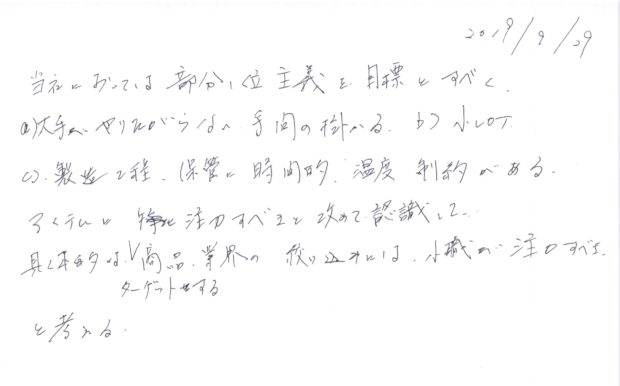 2019/9/29
当社においては部分1位主義を目標とすべく、
a)大手がやりたがらない手間の掛かる、b)小LOT
c)、製造工程、保管に時間的、温度制約がある、
アイテムに特に注力すべきと改めて認識した。
具体的な商品、業界の絞り込みには、小職が注力すべき、
ターゲットとする
と考える。